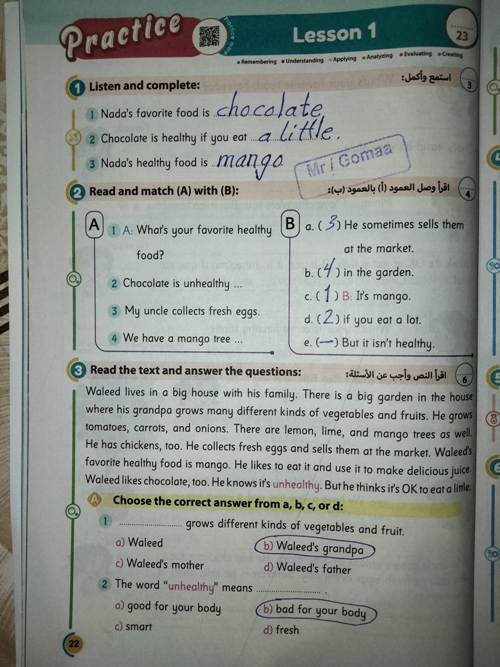 Practice
Lesson 1
23
Remembering Understanding Applying Analyzing Evaluating Creating
1 Listen and complete: استمع وأكمل:
3
1 Nada's favorite food is chocolate.
2 Chocolate is healthy if you eat a little.
3 Nada's healthy food is mango
Mr / Gomaa
2 Read and match (A) with (B): اقرأ وصل العمود (أ) بالعمود (ب):
4
A
1 A: What's your favorite healthy
food?
2 Chocolate is unhealthy ...
3 My uncle collects fresh eggs.
4 We have a mango tree ...
B
a. (3) He sometimes sells them
at the market.
b. (4) in the garden.
c. (1) B: It's mango.
d. (2) if you eat a lot.
e. (—) But it isn't healthy.
3 Read the text and answer the questions: اقرأ النص وأجب عن الأسئلة:
6
Waleed lives in a big house with his family. There is a big garden in the house
where his grandpa grows many different kinds of vegetables and fruits. He grows
tomatoes, carrots, and onions. There are lemon, lime, and mango trees as well.
He has chickens, too. He collects fresh eggs and sells them at the market. Waleed's
favorite healthy food is mango. He likes to eat it and use it to make delicious juice.
Waleed likes chocolate, too. He knows it's unhealthy. But he thinks it's OK to eat a little.
A Choose the correct answer from a, b, c, or d:
1 .................... grows different kinds of vegetables and fruit.
a) Waleed b) Waleed's grandpa
c) Waleed's mother d) Waleed's father
2 The word "unhealthy" means .................... .
a) good for your body b) bad for your body
c) smart d) fresh
22